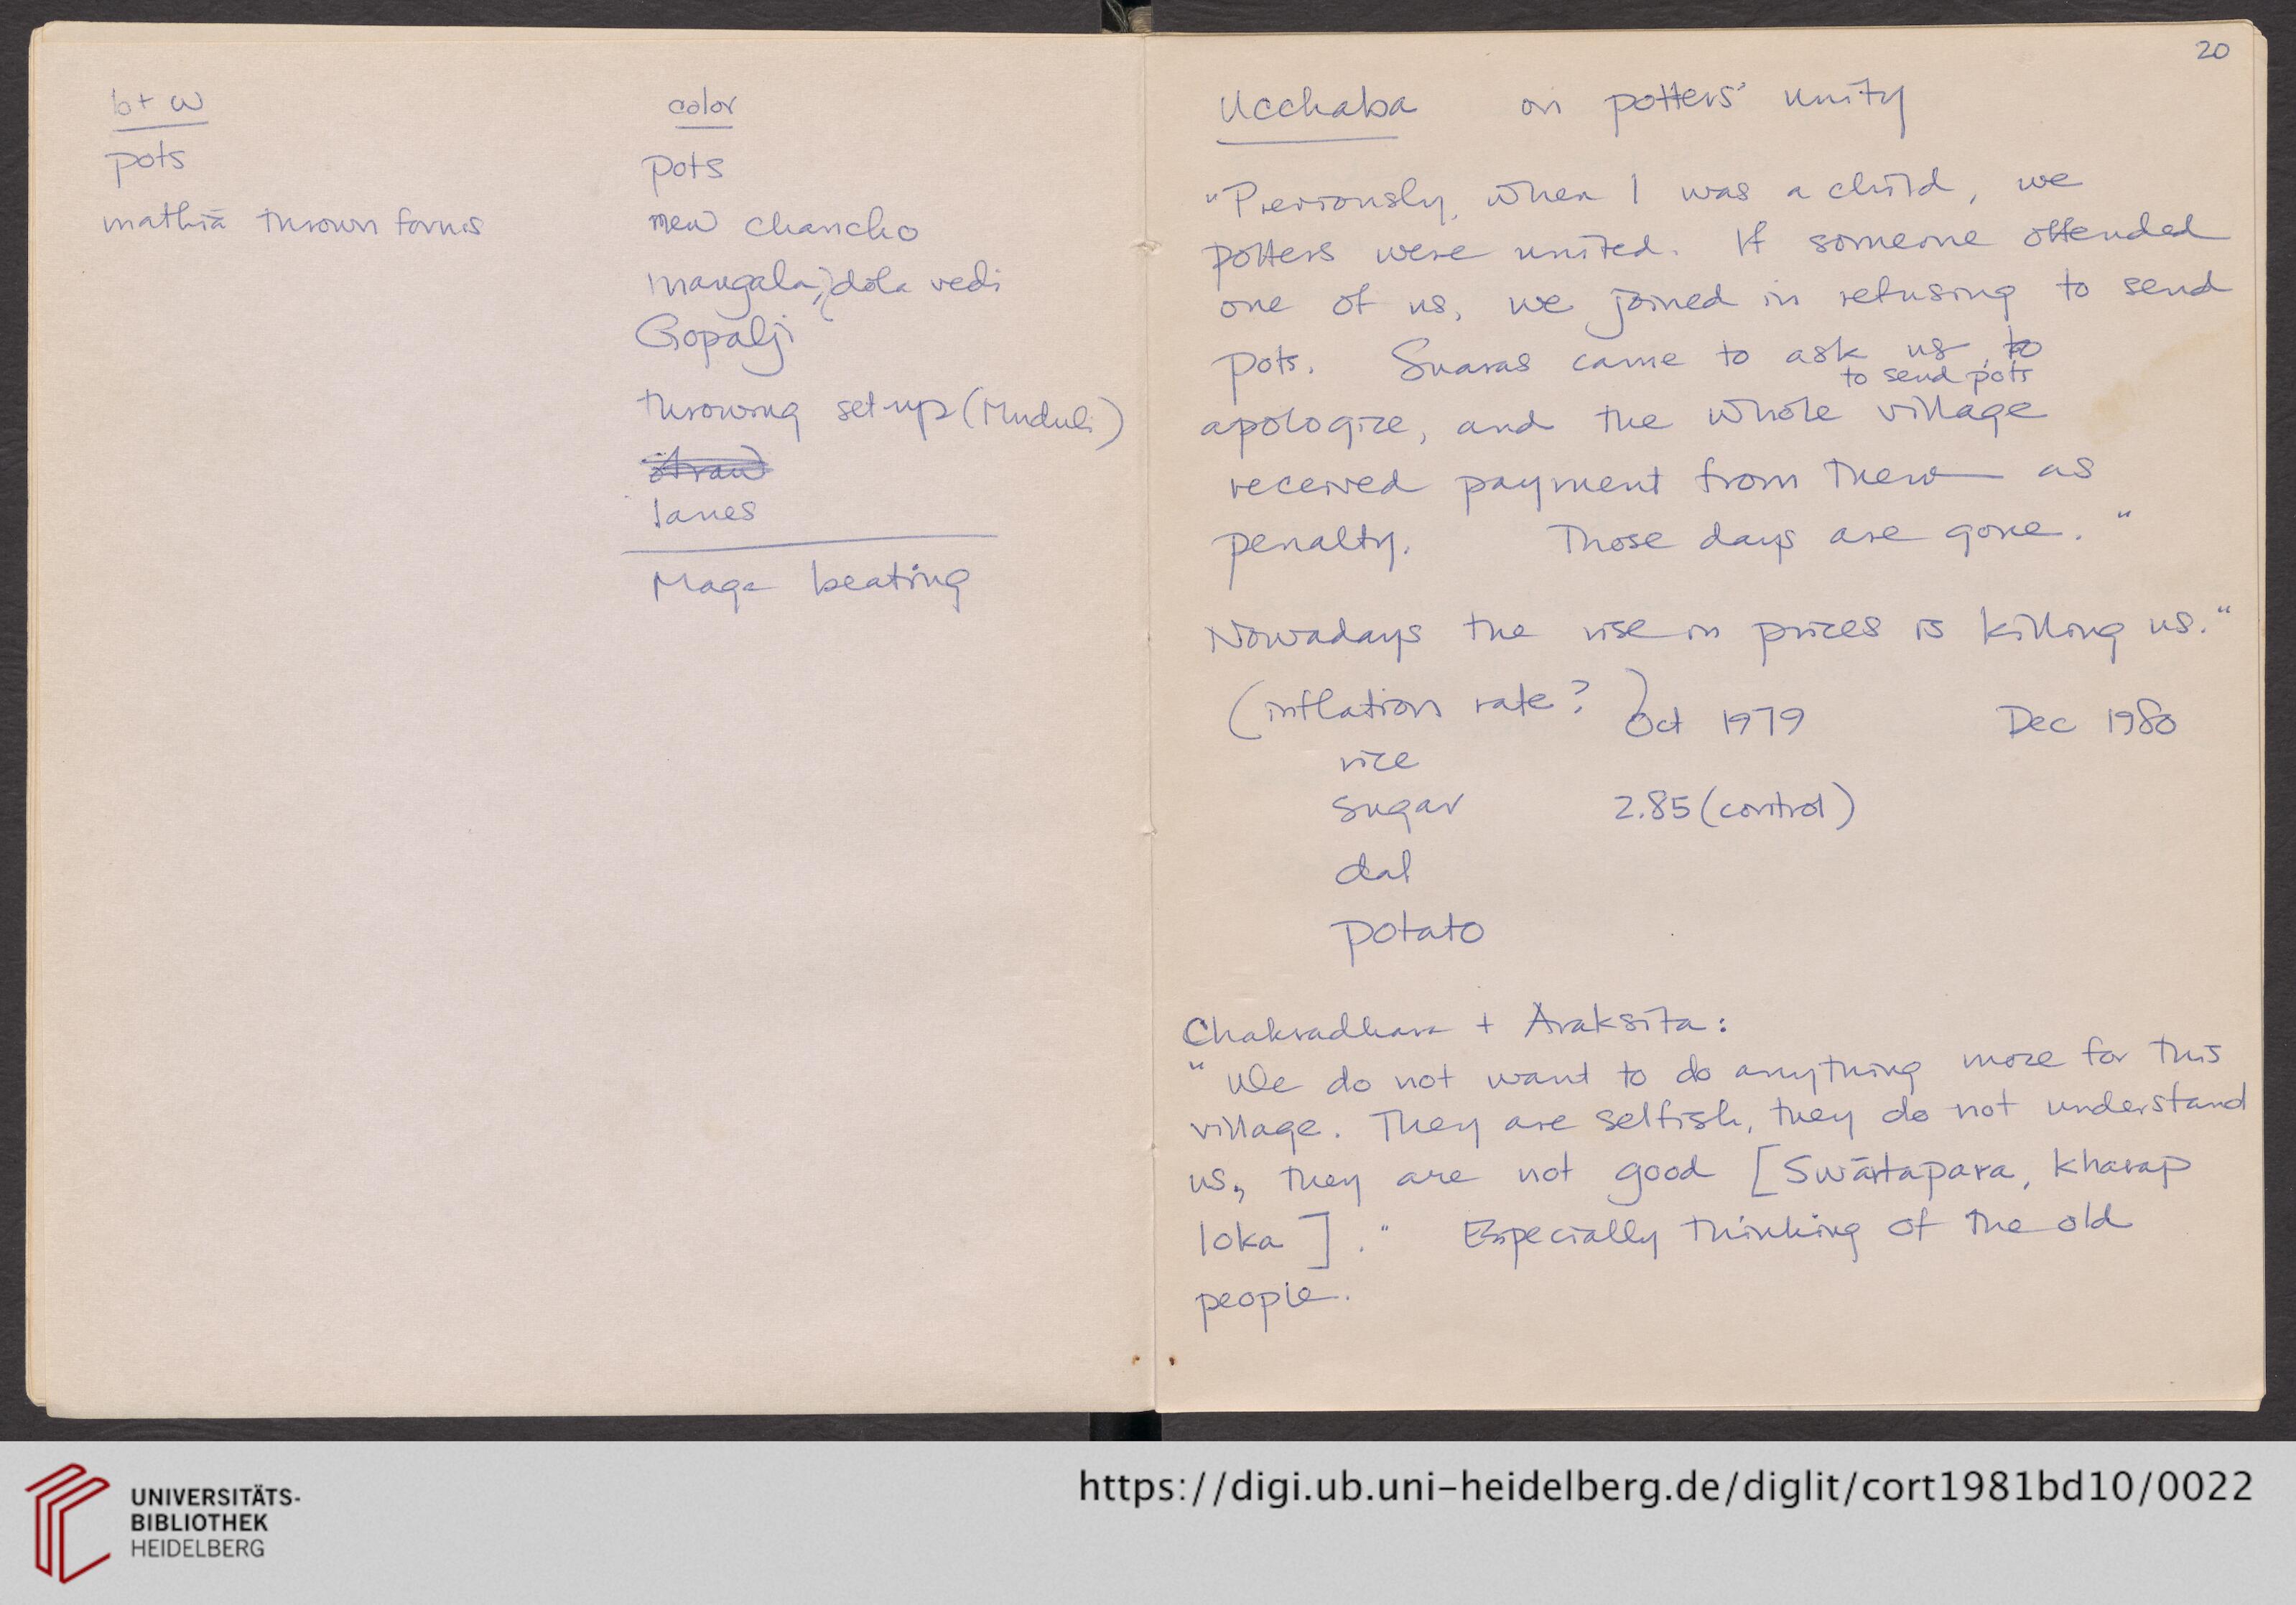 b + w
pots
mathiā thrown forms
color
pots
new chancho
mangala, dola vedi
Gopalji
throwing set-up (Muduli)
straw
lanes
Maga beating
20
Ucchaba on potters' unity
"Previously, when I was a child, we
potters were united. If someone offended
one of us, we joined in refusing to send
pots. Suaras came to ask us, to
to send pots
apologize, and the whole village
received payment from them as
penalty. Those days are gone."
Nowadays the rise in prices is killing us."
(inflation rate?) Oct 1979 Dec 1980
rice
sugar 2.85 (control)
dal
potato
Chakradhara + Araksita:
"We do not want to do anything more for this
village. They are selfish, they do not understand
us, they are not good [Swārtapara, kharap
loka]." Especially thinking of the old
people.
UNIVERSITÄTS-
BIBLIOTHEK
HEIDELBERG
https://digi.ub.uni-heidelberg.de/diglit/cort1981bd10/0022